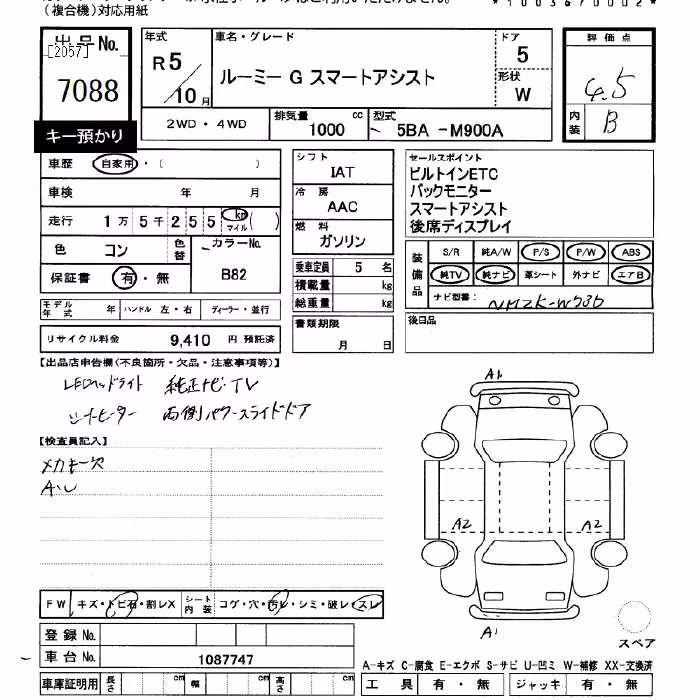 (複合機)対応用紙
*1003670002*
出品No.
[2057]
7088
キー預かり
年式
R5/10月
車名・グレード
ルーミー G スマートアシスト
ドア
5
形状
W
2WD・4WD
排気量
1000 cc
型式
5BA -M900A
評価点
4.5
内装
B
車歴 自家用・( )
車検 年 月
走行 1万5千255 km マイル ( )
色 コン 色替 カラーNo. B82
保証書 有・無
モデル年式 年 ハンドル 左・右 ディーラー・並行
リサイクル料金 9,410 円 預託済
シフト
IAT
冷房
AAC
燃料
ガソリン
乗車定員 5 名
積載量 kg
総重量 kg
書類期限
月 日
セールスポイント
ビルトインETC
バックモニター
スマートアシスト
後席ディスプレイ
装備品
S/R 純A/W P/S P/W ABS
純TV 純ナビ 革シート 外ナビ エアB
ナビ型番:
後日品
【出品店申告欄(不良箇所・欠品・注意事項等)】
LEDヘッドライト 純正ナビ・TV
シートヒーター 両側パワースライドドア
【検査員記入】
メカキー欠
A・U
A1
A2 A2
A1
スペア
FW キズ・トビ石・割レX シート内装 コゲ・穴・汚レ・シミ・破レ・スレ
登録No.
車台No. 1087747
車庫証明用 長さ cm 幅 cm 高さ cm
A-キズ C-腐食 E-エクボ S-サビ U-凹ミ W-補修 XX-交換済
工具 有・無 ジャッキ 有・無